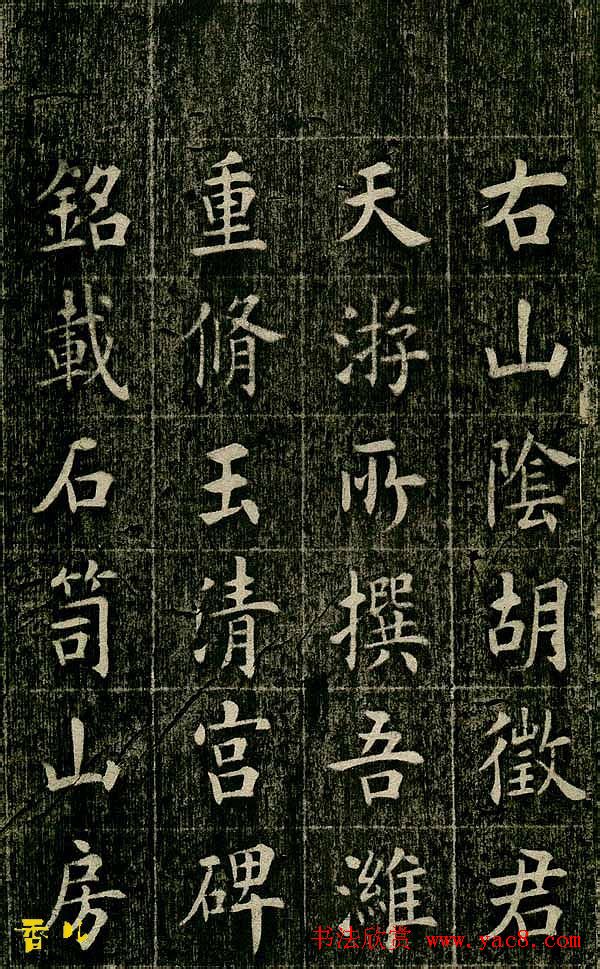 右山陰胡徵君
天游所撰吾濰
重脩玉清宮碑
銘載石笥山房
香儿
书法欣赏 www.yac8.com